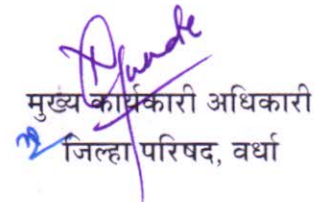 मुख्य कार्यकारी अधिकारी
जिल्हा परिषद, वर्धा